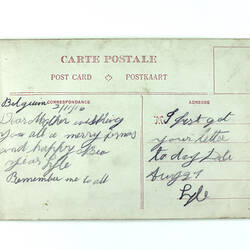 CARTE POSTALE
POST CARD
POSTKAART
CORRESPONDANCE
ADRESSE
Belgium
Dear Mother wishing
you all a merry xmas
and happy New
year Lyle
Remember me to all
I just got
your letter
to day
Aug 27
Lyle